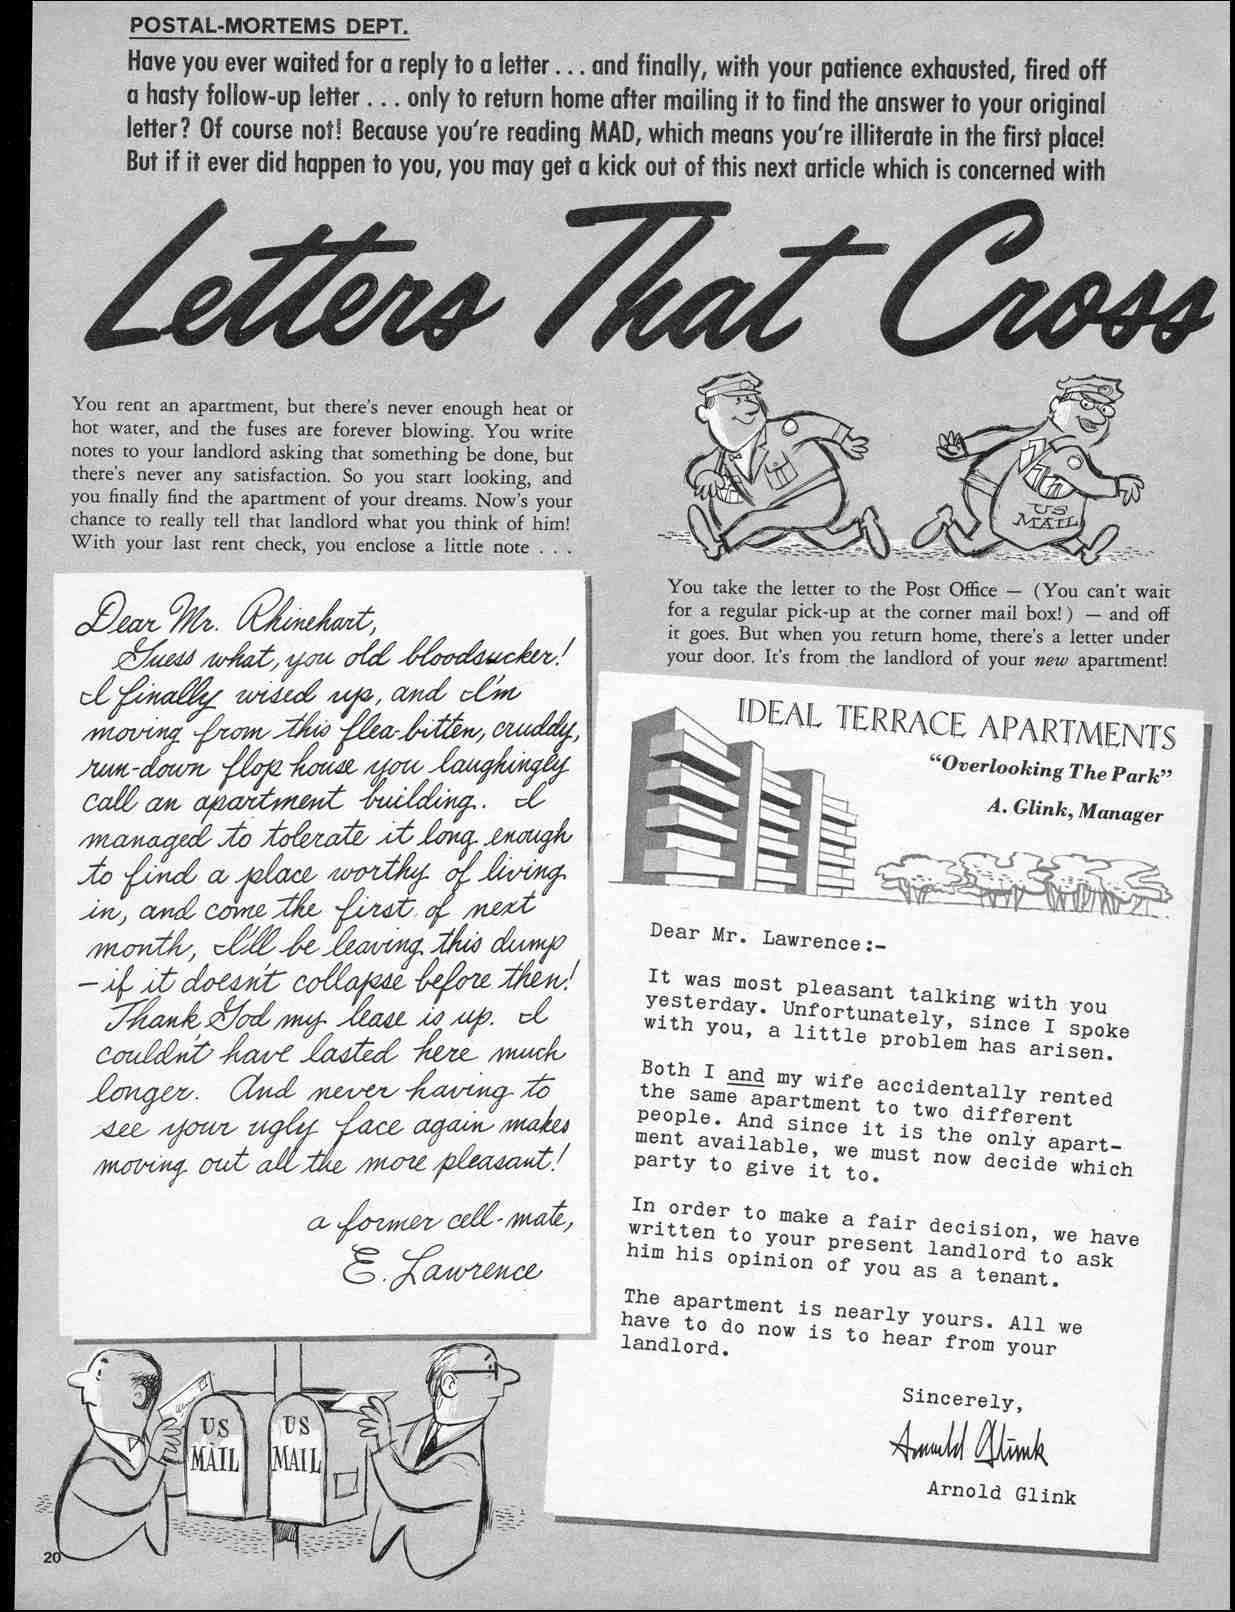 POSTAL-MORTEMS DEPT.
Have you ever waited for a reply to a letter . . . and finally, with your patience exhausted, fired off
a hasty follow-up letter . . . only to return home after mailing it to find the answer to your original
letter? Of course not! Because you're reading MAD, which means you're illiterate in the first place!
But if it ever did happen to you, you may get a kick out of this next article which is concerned with
Letters That Cross
You rent an apartment, but there's never enough heat or
hot water, and the fuses are forever blowing. You write
notes to your landlord asking that something be done, but
there's never any satisfaction. So you start looking, and
you finally find the apartment of your dreams. Now's your
chance to really tell that landlord what you think of him!
With your last rent check, you enclose a little note . . .
Dear Mr. Rhinehart,
Guess what, you old bloodsucker!
I finally wised up, and I'm
moving from this flea-bitten, cruddy,
run-down flop house you laughingly
call an apartment building. I
managed to tolerate it long enough
to find a place worthy of living
in, and come the first of next
month, I'll be leaving this dump
– if it doesn't collapse before then!
Thank God my lease is up. I
couldn't have lasted here much
longer. And never having to
see your ugly face again makes
moving out all the more pleasant!
a former cell-mate,
E. Lawrence
US
MAIL
US
MAIL
20
US
MAIL
You take the letter to the Post Office — (You can't wait
for a regular pick-up at the corner mail box!) — and off
it goes. But when you return home, there's a letter under
your door. It's from the landlord of your new apartment!
IDEAL TERRACE APARTMENTS
"Overlooking The Park"
A. Glink, Manager
Dear Mr. Lawrence:-
It was most pleasant talking with you
yesterday. Unfortunately, since I spoke
with you, a little problem has arisen.
Both I and my wife accidentally rented
the same apartment to two different
people. And since it is the only apart-
ment available, we must now decide which
party to give it to.
In order to make a fair decision, we have
written to your present landlord to ask
him his opinion of you as a tenant.
The apartment is nearly yours. All we
have to do now is to hear from your
landlord.
Sincerely,
Arnold Glink
Arnold Glink